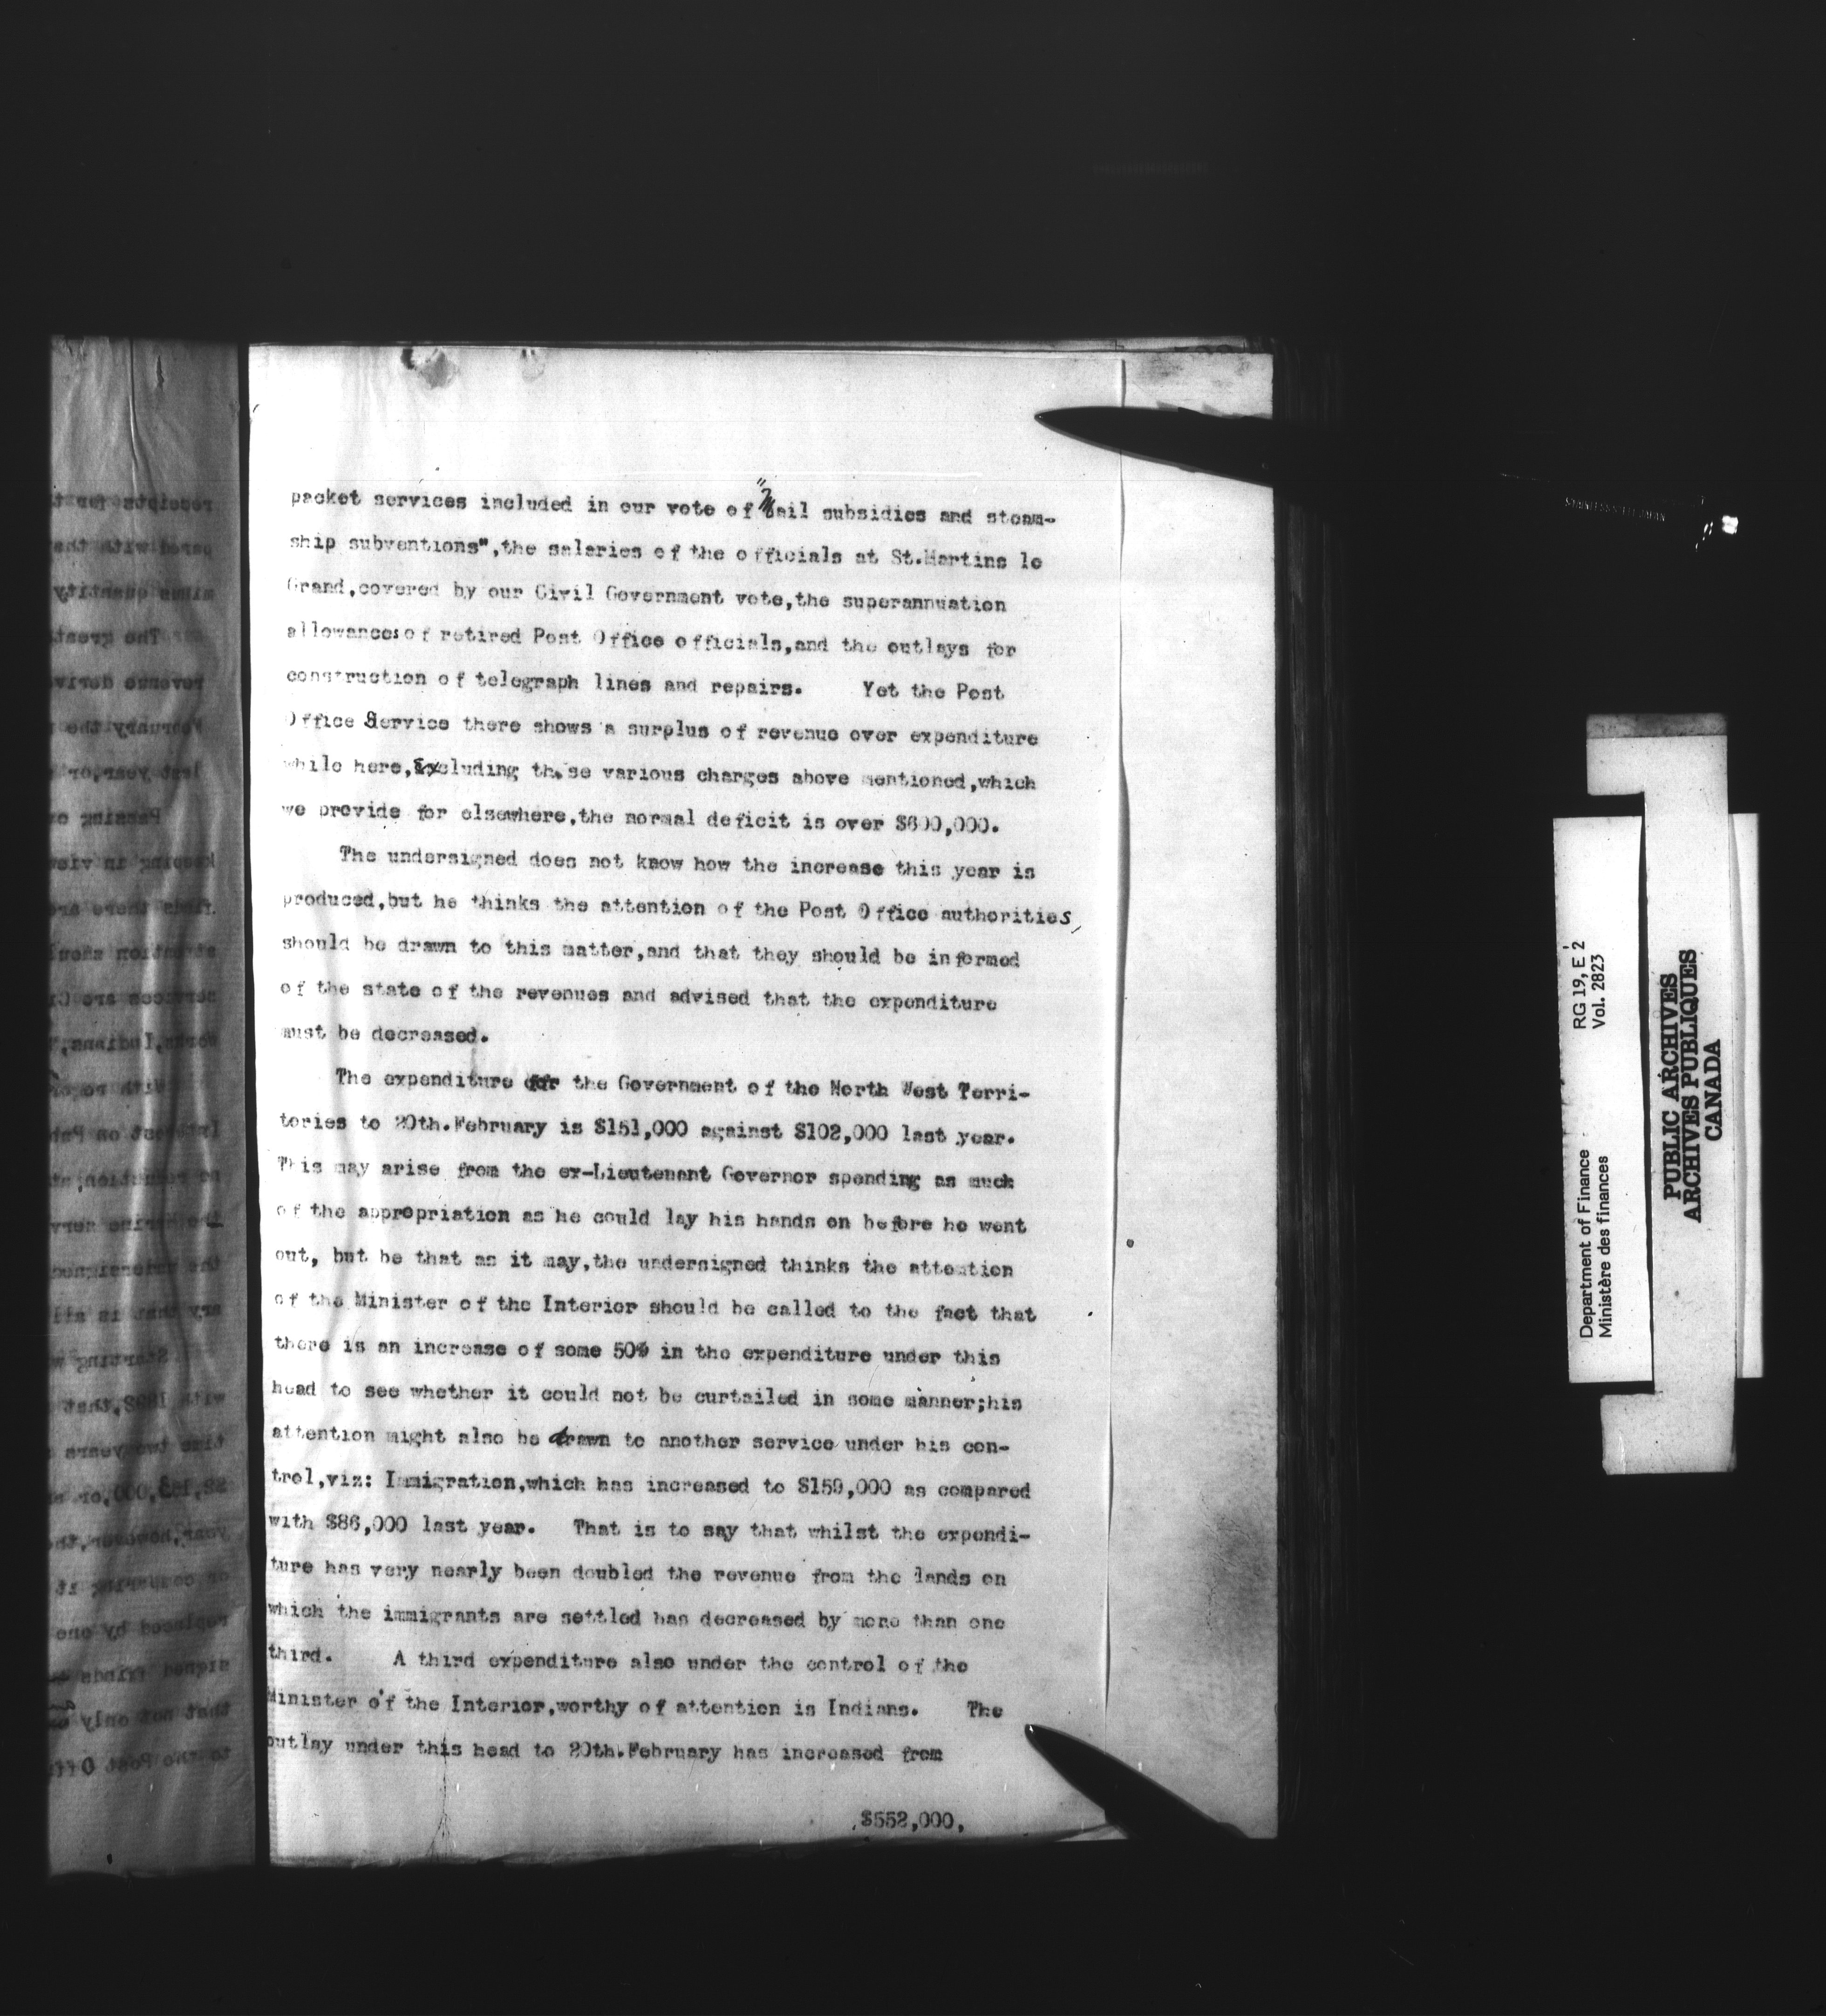 packet services included in our vote of "Mail subsidies and steam-
ship subventions",the salaries of the officials at St.Martins le
Grand,covered by our Civil Government vote,the superannuation
allowances of retired Post Office officials,and the outlays for
construction of telegraph lines and repairs. Yet the Post
Office Service there shows a surplus of revenue over expenditure
while here,excluding these various charges above mentioned,which
we provide for elsewhere,the normal deficit is over $600,000.
The undersigned does not know how the increase this year is
produced,but he thinks the attention of the Post Office authorities,
should be drawn to this matter,and that they should be informed
of the state of the revenues and advised that the expenditure
must be decreased.
The expenditure for the Government of the North West Terri-
tories to 20th.February is $151,000 against $102,000 last year.
This may arise from the ex-Lieutenant Governor spending as much
of the appropriation as he could lay his hands on before he went
out, but be that as it may,the undersigned thinks the attention
of the Minister of the Interior should be called to the fact that
there is an increase of some 50% in the expenditure under this
head to see whether it could not be curtailed in some manner;his
attention might also be drawn to another service under his con-
trol,viz: Immigration,which has increased to $159,000 as compared
with $86,000 last year. That is to say that whilst the expendi-
ture has very nearly been doubled the revenue from the lands on
which the immigrants are settled has decreased by more than one
third. A third expenditure also under the control of the
Minister of the Interior,worthy of attention is Indians. The
outlay under this head to 20th.February has increased from
$552,000,
Department of Finance RG 19, E 2
Ministère des finances Vol. 2823
PUBLIC ARCHIVES
ARCHIVES PUBLIQUES
CANADA